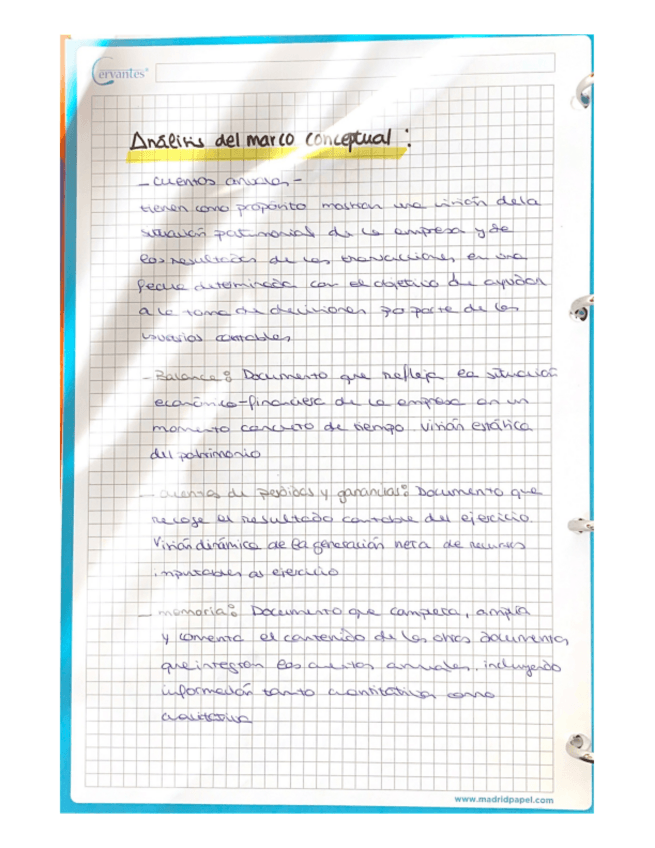 Cervantes
Análisis del marco conceptual:
- cuentas anuales -
tienen como propósito mostrar una visión de la
situación patrimonial de la empresa y de
los resultados de las transacciones en una
fecha determinada con el objetivo de ayudar
a la toma de decisiones por parte de los
usuarios contables
- Balance: Documento que refleja la situación
económico-financiera de la empresa en un
momento concreto de tiempo. Visión estática
del patrimonio
- cuenta de perdidas y ganancias: Documento que
recoge el resultado contable del ejercicio.
Visión dinámica de la generación neta de recursos
imputables al ejercicio
- memoria: Documento que completa, amplía
y comenta el contenido de los otros documentos
que integran las cuentas anuales, incluyendo
información tanto cuantitativa como
cualitativa
www.madridpapel.com